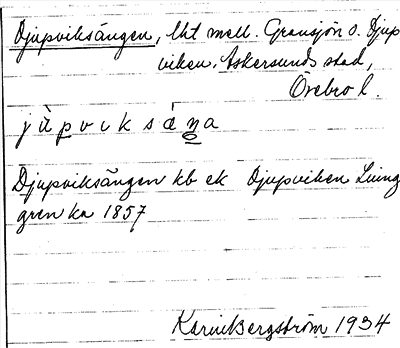 Djupviksängen, lht mell. Gransjön o. Djup
viken. Askersunds stad,
Örebro l.
jùpviksáŋa
Djupviksängen kb ek Djupviken Ljung
gren ka 1857
Karin Bergström 1934